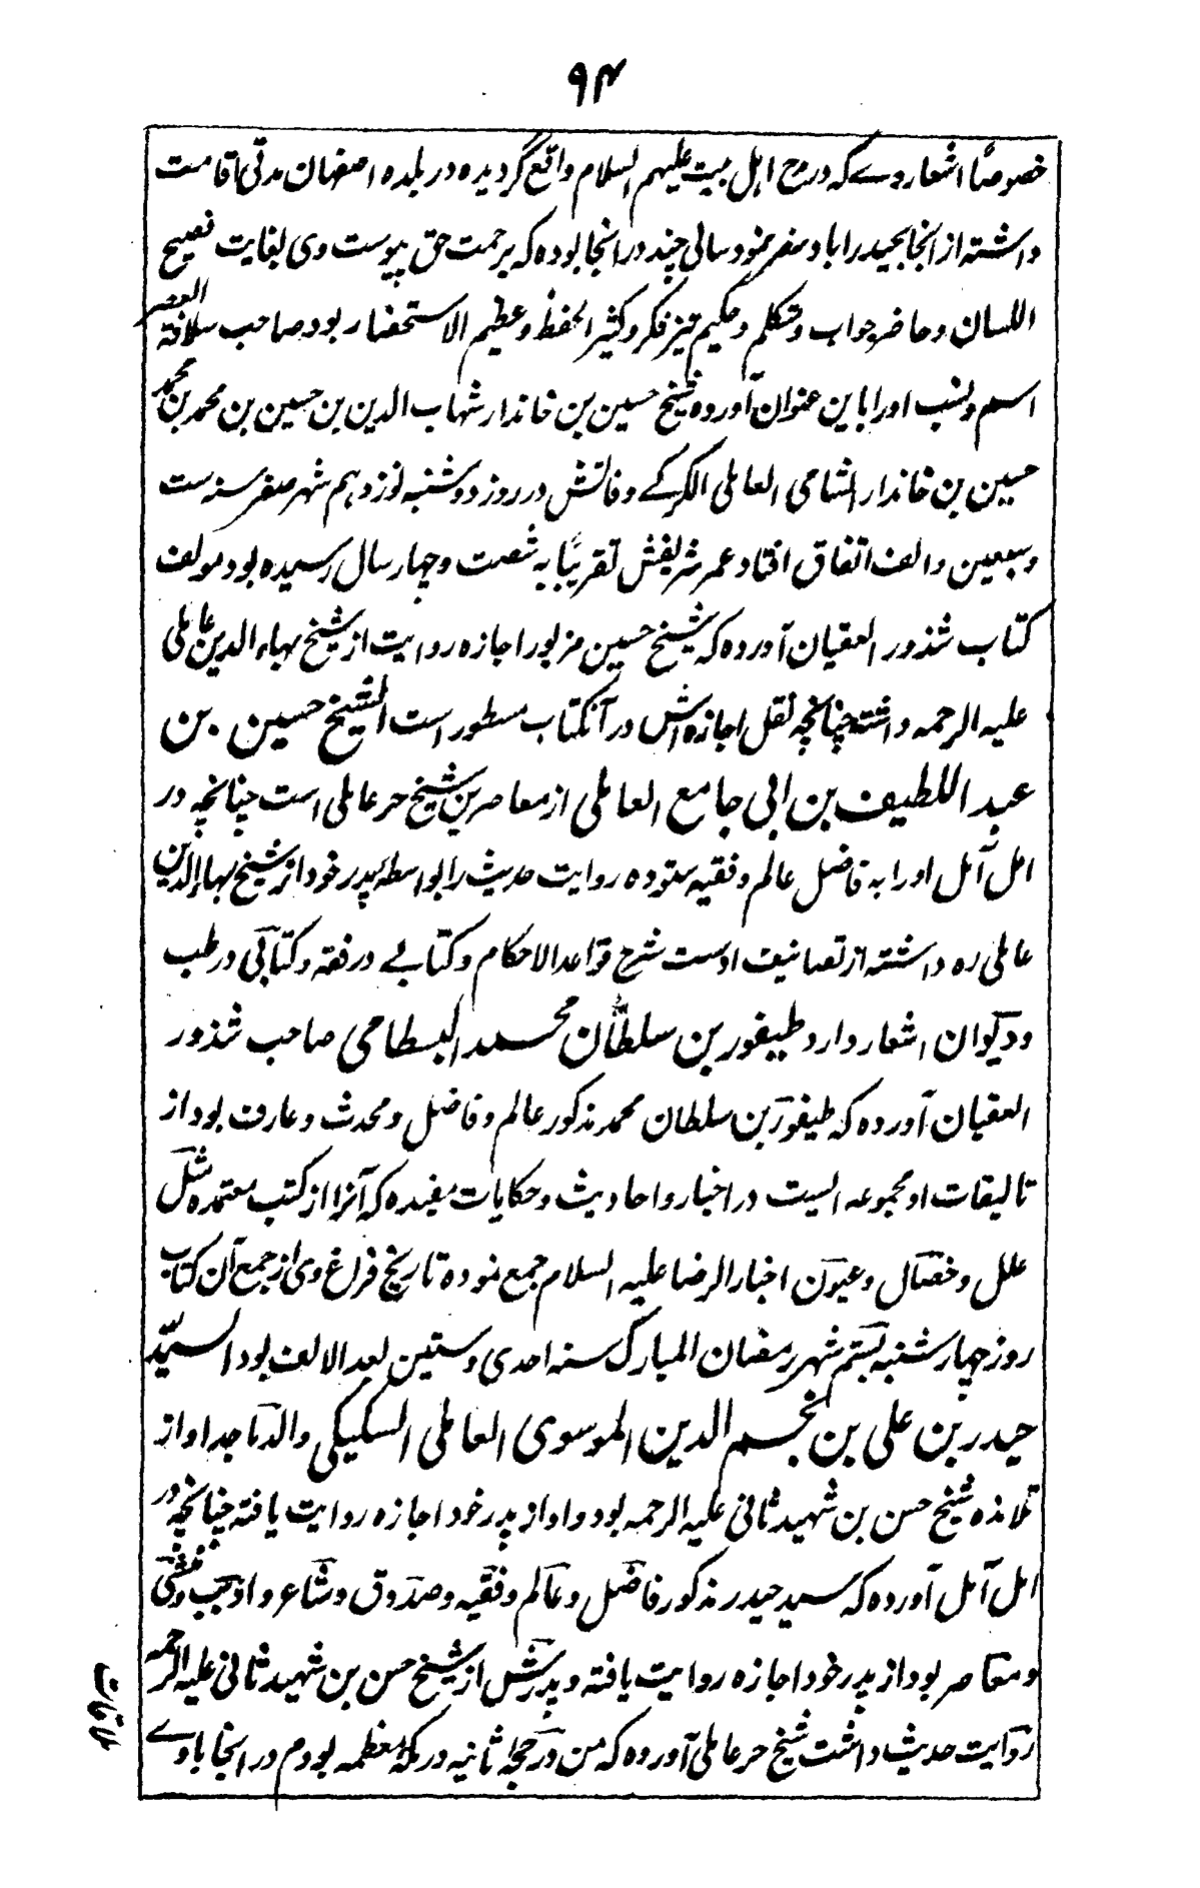 ۹۴
خصوصًا اشعار وے که در مدح اہل بیت علیہم السلام واقع گردیده در بلده اصفہان مدتی اقامت
داشته از انجا بحیدراباد سفر نمود سالی چند در انجا بوده که برحمت حق پیوست وی بغایت فصیح
اللسان و حاضر جواب و متکلم و حکیم تیز فکر و کثیر الحفظ و عظیم الاستحضار بود صاحب سلافة العصر
اسم و نسب او را باین عنوان آورده شیخ حسین بن خاندار شہاب الدین بن حسین بن محمد بن محمد
حسین بن خاندار الشامی العاملی الکرکے وفاتش در روز دوشنبه نوزدہم شہر صفر سنه ست
و سبعین و الف اتفاق افتاد عمر شریفش تقریبًا به شصت و چہار سال رسیده بود مولف
کتاب شذور العقیان آورده که شیخ حسین مزبور اجازه روایت از شیخ بہاء الدین عاملی
علیه الرحمه داشته چنانچه نقل اجازه اش در آنکتاب مسطور است الشیخ حسین بن
عبد اللطیف بن ابی جامع العاملی از معاصرین شیخ حر عاملی است چنانچه در
امل آمل او را به فاضل عالم و فقیه ستوده روایت حدیث را بواسطه پدر خود از شیخ بہاء الدین
عاملی ره داشته از تصانیف اوست شرح قواعد الاحکام و کتابے در فقه و کتابی در طب
و دیوان اشعار دارد طیفور بن سلطان محمد البسطامی صاحب شذور
العقیان آورده که طیفور بن سلطان محمد مذکور عالم و فاضل و محدث و عارف بود از
تالیفات او مجموعه ایست در اخبار و احادیث و حکایات مفیده که آنرا از کتب معتمده مثل
علل و خصال و عیون اخبار الرضا علیه السلام جمع نموده تاریخ فراغ وی از جمع آن کتاب
روز چہار شنبه بستم شہر رمضان المبارک سنه احدی و ستین بعد الالف بود السیّد
حیدر بن علی بن نجم الدین الموسوی العاملی السکیکی والد ماجد او از
تلامذه شیخ حسن بن شہید ثانی علیه الرحمه بود و او از پدر خود اجازه روایت یافته چنانچه در
امل آمل آورده که سید حیدر مذکور فاضل و عالم و فقیه و صدوق و شاعر و ادیب و منشی
و معاصر بود از پدر خود اجازه روایت یافته و پدرش از شیخ حسن بن شہید ثانی علیه الرحمه
روایت حدیث داشت شیخ حر عاملی آورده که من در حجۂ ثانیه در مکۂ معظمه بودم در انجا باوے
ملاقات